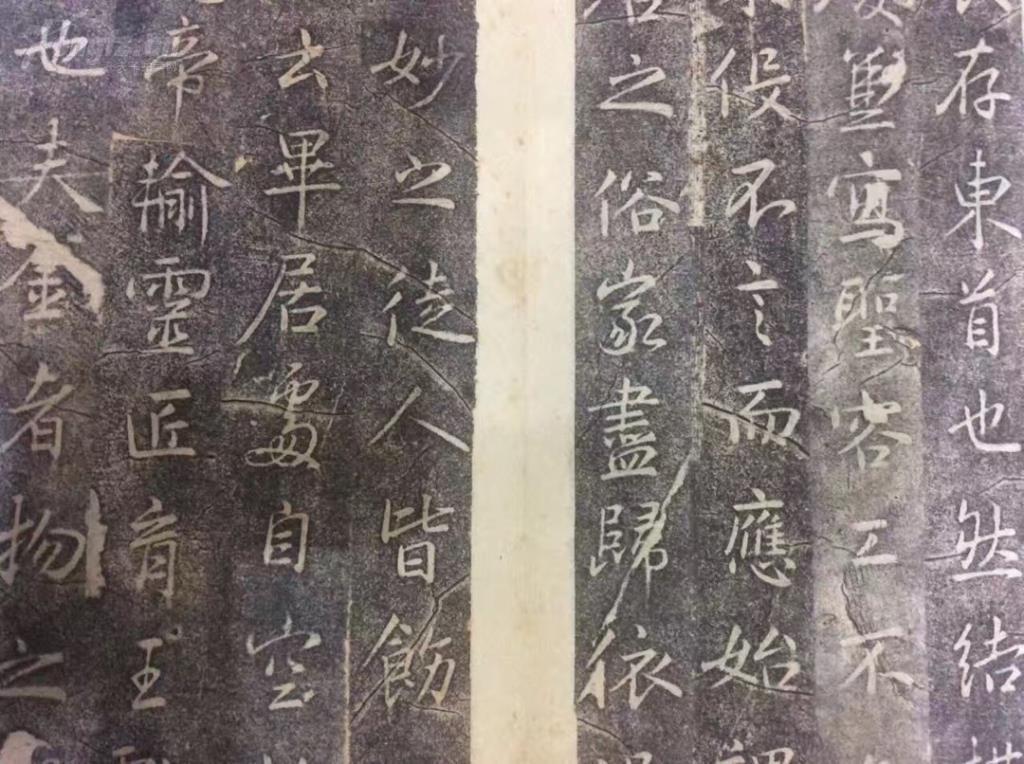 存東首也然结
寫聖容工不
役不言而應始
之俗家盡歸依
妙之徒人皆飭
云畢居處自空
帝輸靈匠育王
也夫金者物之